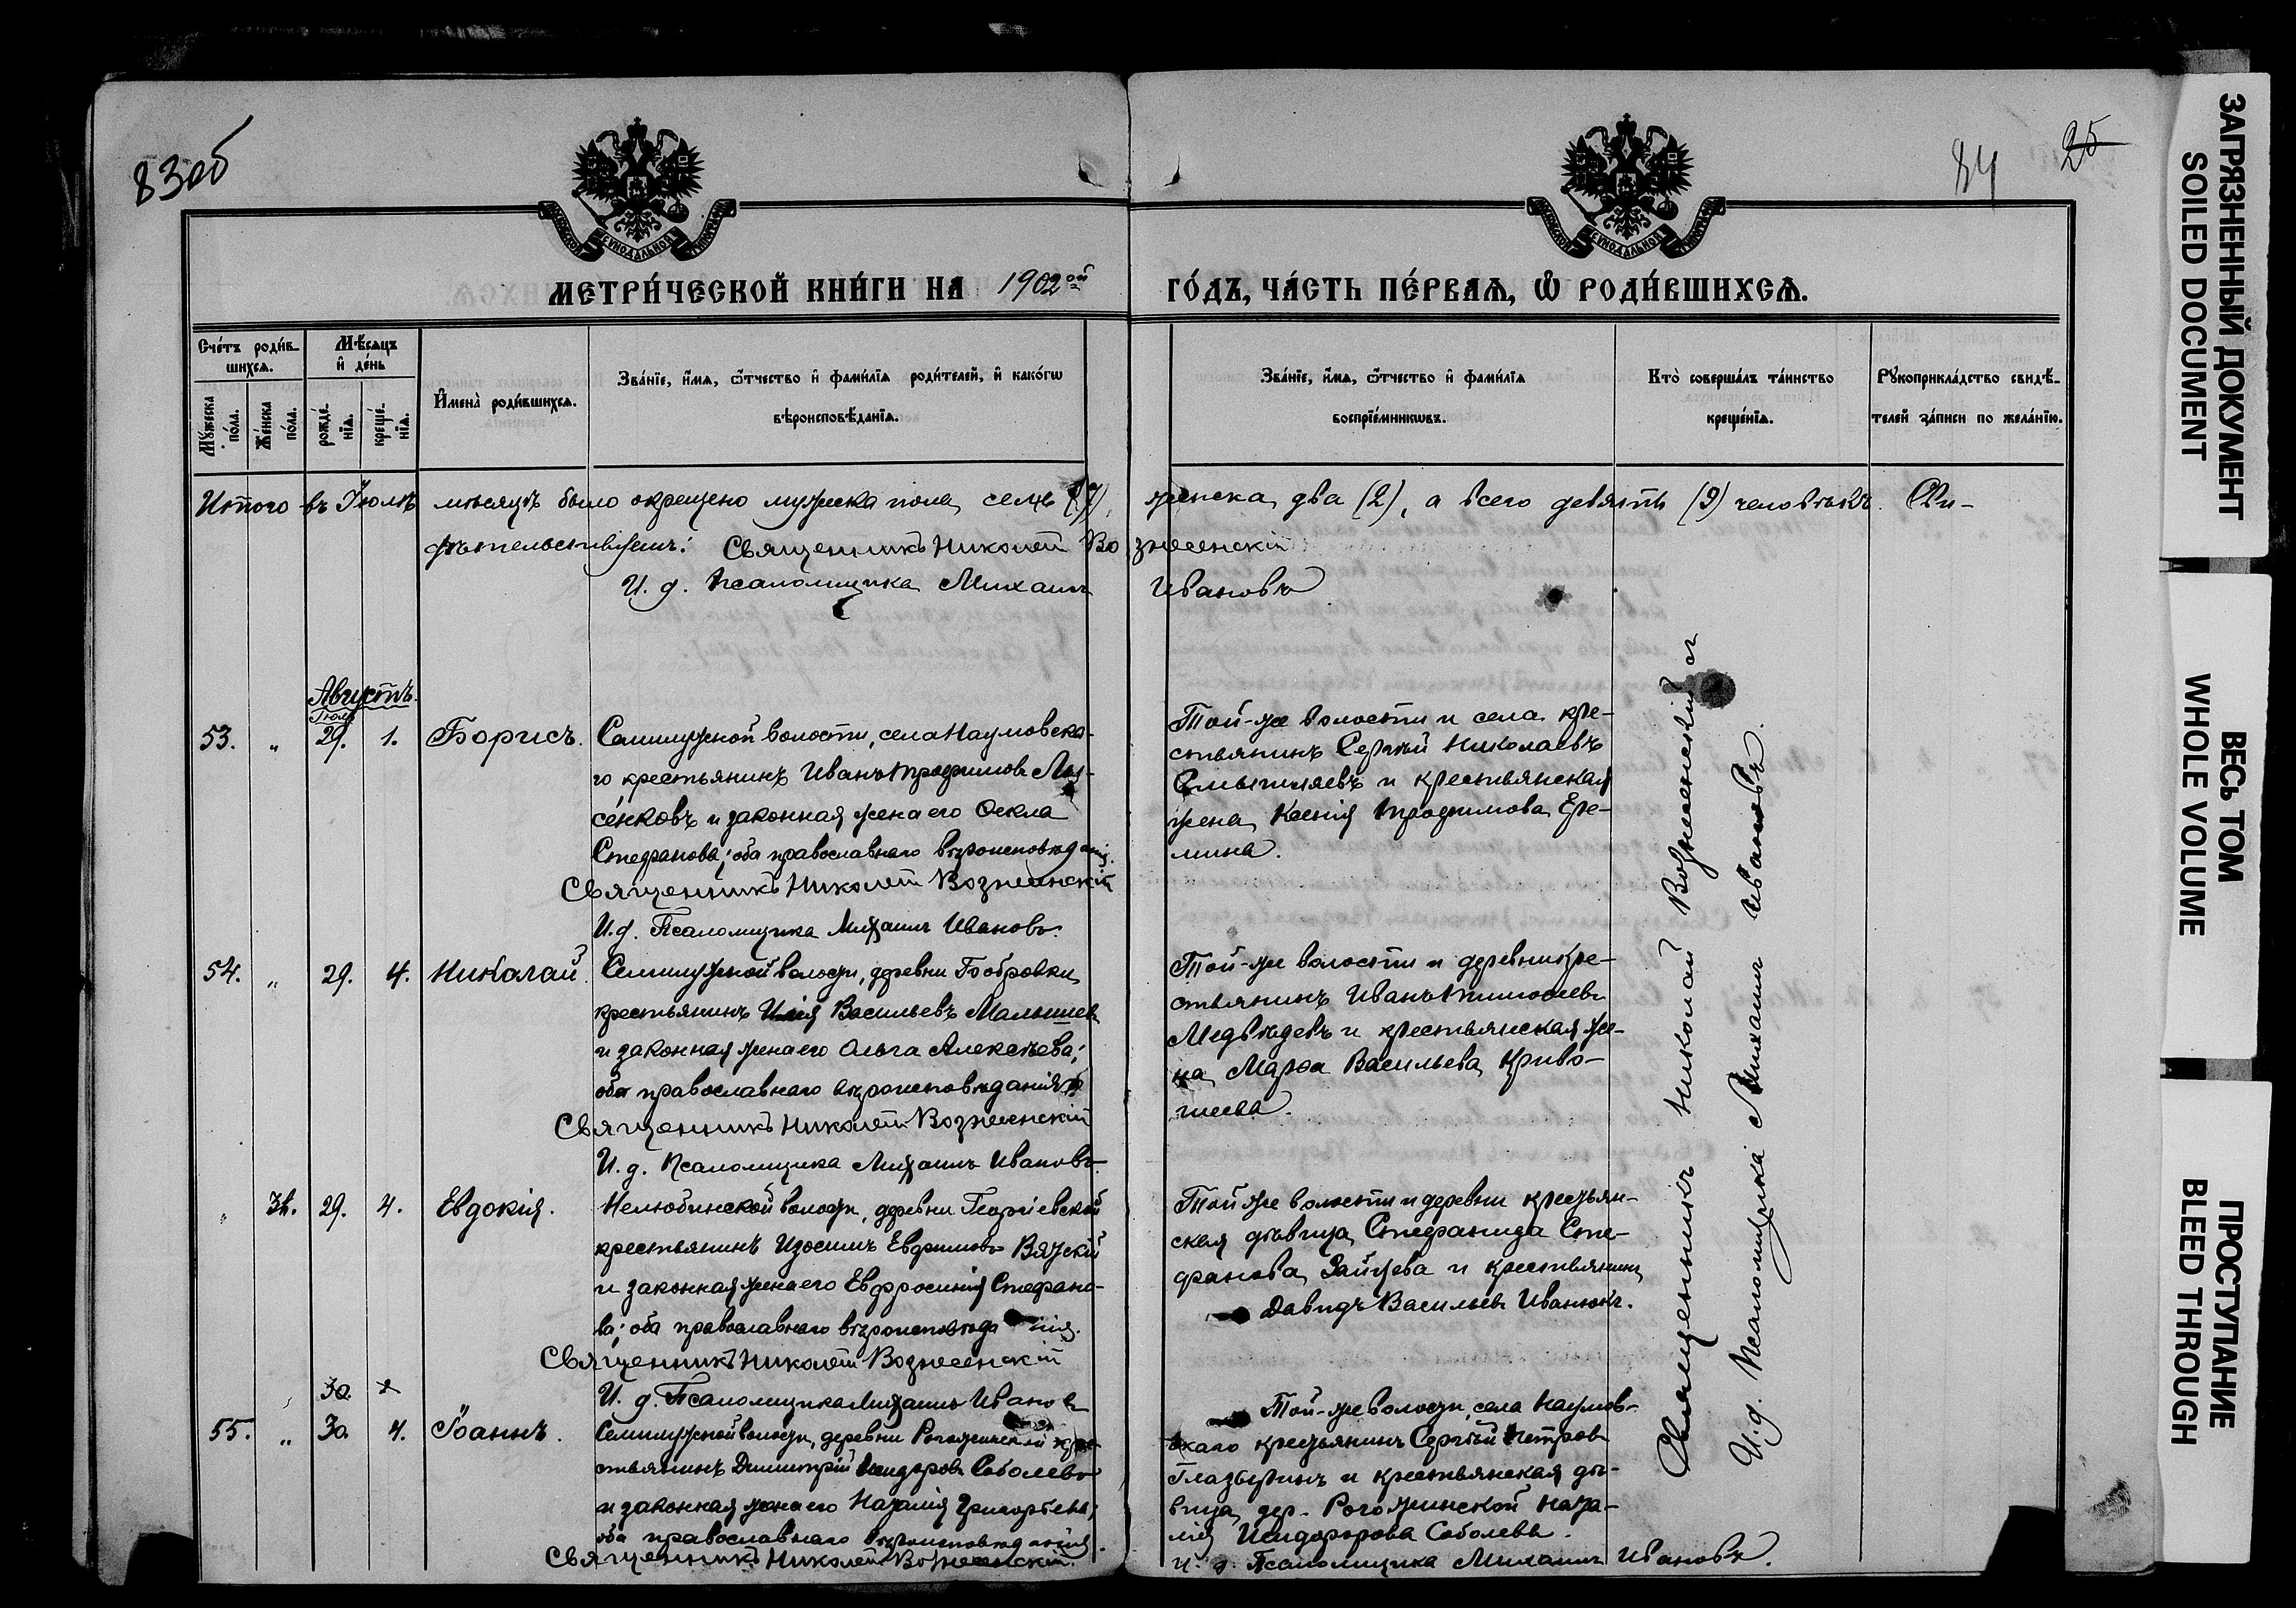 83об
84
25
МЕТРИ́ЧЕСКОЙ КНИ́ГИ НА 1902ой ГО́ДЪ, ЧА́СТЬ ПЕ́РВАѦ, Ѿ РОДИ́ВШИХСѦ.
Сче́тъ роди́в-
шихсѧ.
Мѣ́сѧцъ
и҆ де́нь
Мꙋ́жеска
по́ла.
Же́нска
по́ла.
рожде́-
нїѧ.
креще́-
нїѧ.
И҆мена̀ роди́вшихсѧ.
Зва́нїе, и҆́мѧ, ѻ҆́тчество и҆ фами́лїѧ роди́телей, и҆ како́гѡ
вѣроисповѣ́данїѧ.
Зва́нїе, и҆́мѧ, ѻ҆́тчество и҆ фами́лїѧ
воспрїе́мникѡвъ.
Кто̀ соверша́лъ та́инство
креще́нїѧ.
Рꙋкоприкла́дство свидѣ́-
телей за́писи по жела́нїю.
Итого въ Іюлѣ мѣсяцѣ было окрещено мужеска пола семь (7), женска два (2), а всего девять (9) человѣкъ. Сви-
дѣтельствуемъ: Священникъ Николай Вознесенскій
И. д. Псаломщика Михаилъ Ивановъ
Августъ.
Іюль
53. " 29. 1. Борисъ.
Семилужной волости, села Наумовска-
го крестьянинъ Иванъ Трофимовъ
сенковъ и законная жена его Ѳекла
Стефанова; оба православнаго вѣроисповѣданія.
Священникъ Николай Вознесенскій
И. д. Псаломщика Михаилъ Ивановъ.
Той-же волости и села кре-
стьянинъ Сергѣй Николаевъ
Смышляевъ и крестьянская
жена Ксенія Трофимова Ере-
мина.
54. " 29. 4. Николай.
Семилужной волости, деревни Бобровки
крестьянинъ Илія Васильевъ Малышевъ
и законная жена его Ольга Алексѣева;
оба православнаго вѣроисповѣданія
Священникъ Николай Вознесенскій
И. д. Псаломщика Михаилъ Ивановъ.
Той-же волости и деревни кре-
стьянинъ Иванъ Тимоѳеевъ
Медвѣдевъ и крестьянская же-
на Марѳа Васильева Криво-
шеева.
" 38. 29. 4. Евдокія.
Нелюбинской волости, деревни Георгіевской
крестьянинъ Изосимъ Евфимовъ Вятскій
и законная жена его Евфросинія Стефано-
ва; оба православнаго вѣроисповѣданія.
Священникъ Николай Вознесенскій
И. д. Псаломщика Михаилъ Ивановъ
Той же волости и деревни крестьян-
ская дѣвица Стефанида Сте-
фанова Зайцева и крестьянинъ
Давидъ Васильевъ Иванюкъ.
30.
55. " 30. 4. Іоаннъ.
Семилужной волости, деревни Рогожинской кре-
стьянинъ Димитрій Исидоровъ Соболевъ
и законная жена его Наталія Григорьева;
оба православнаго вѣроисповѣданія.
Священникъ Николай Вознесенскій.
Той-же волости, села Наумов-
скаго крестьянинъ Сергѣй Петровъ
Глазыринъ и крестьянская дѣ-
вица дер. Рогожинской Ната-
лія Исидорова Соболева.
И. д. Псаломщика Михаилъ Ивановъ.
Священникъ Николай Вознесенскій
И. д. Псаломщика Михаилъ Ивановъ.
ЗАГРЯЗНЕННЫЙ ДОКУМЕНТ
SOILED DOCUMENT
ВЕСЬ ТОМ
WHOLE VOLUME
ПРОСТУПАНИЕ
BLEED THROUGH